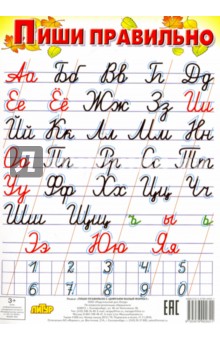 Пиши правильно
Аа Бб Вв Гг Дд
Ее Ёё Жж Зз Ии
Йй Кк Лл Мм Нн
Оо Пп Рр Сс Тт
Уу Фф Хх Цц Чч
Шш Щщ ъ ы ь
Ээ Юю Яя
1 2 3 4 5
6 7 8 9 0
3+
ЛИТУР
ЕАС